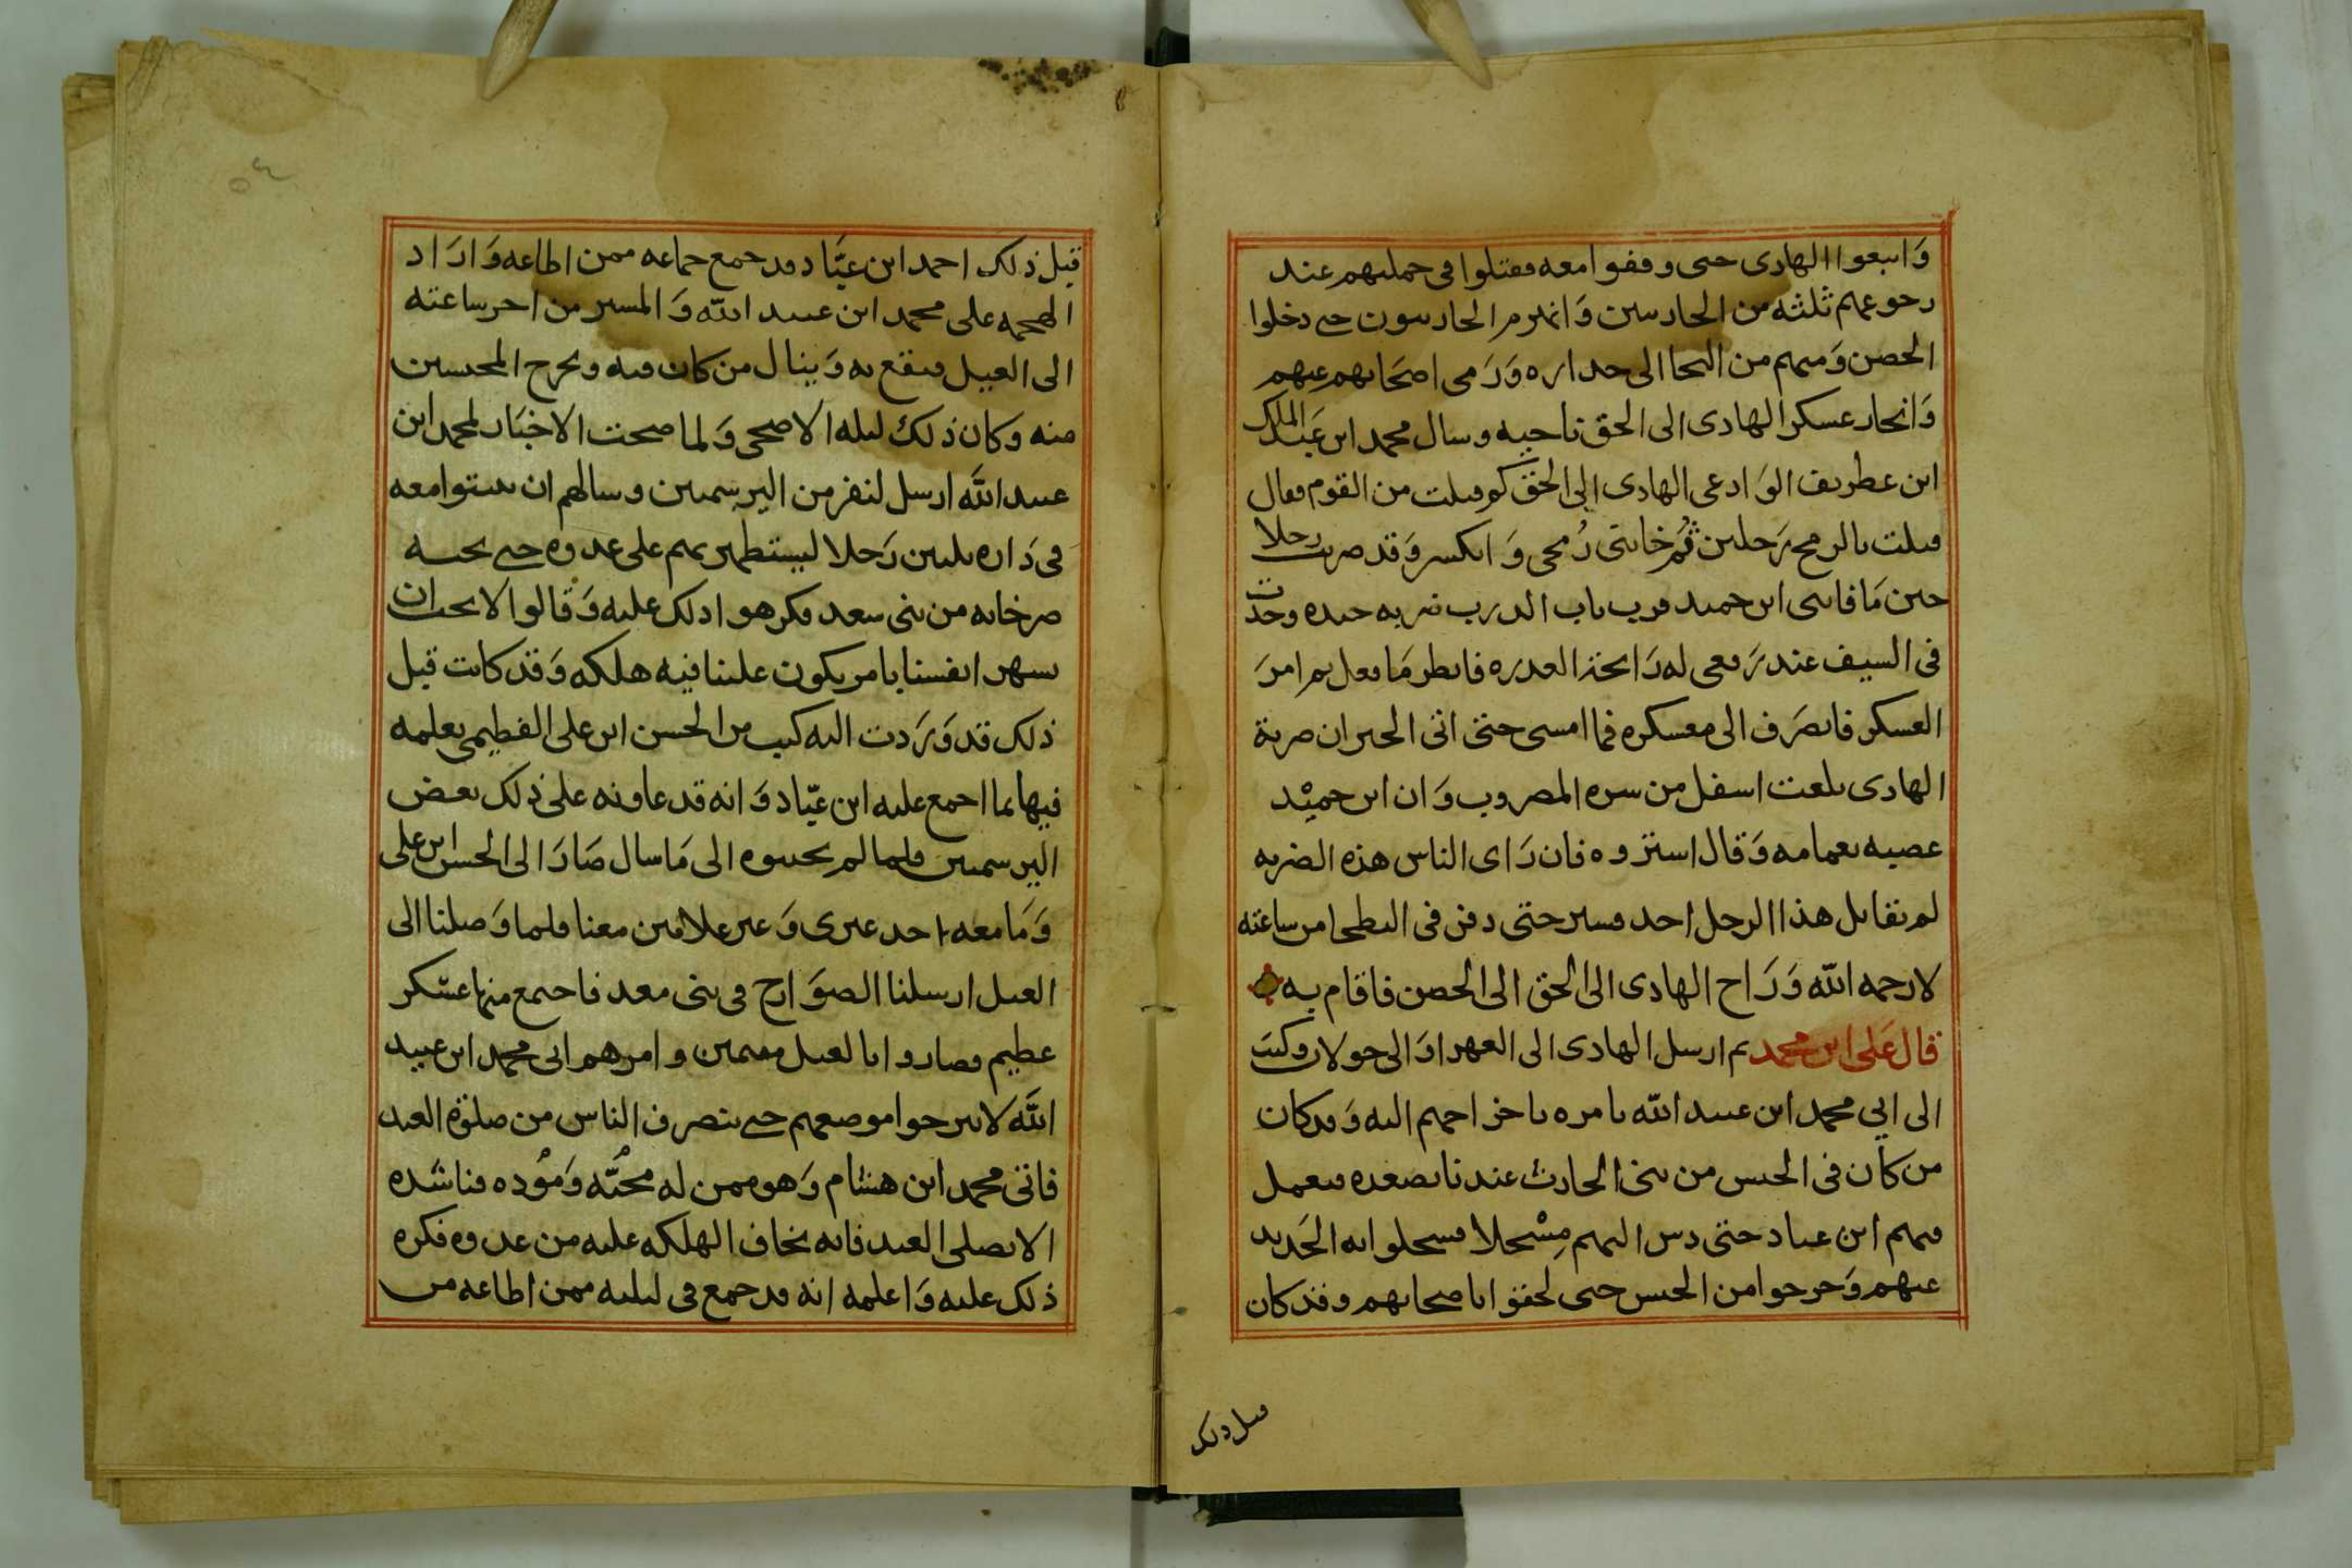 وَاتبعوا الهادى حتى وقفوا معه فقتلوا فى حملتهم عند
رجوعهم ثلثه من الحارسين وَانهزم الحارسون حتى دخلوا
الحصن وَمنهم من التجا الى جداره وَرَمى اصحَابهم عنهم
وَانحاز عسكر الهادى الى الحق ناحيه وسال محمد ابن عَبد الملك
ابن عطريف الوَادعى الهادى الى الحق كم قتلت من القوم فقال
قتلت بالرمح رَجلين ثُم خاننى رُمحى وَانكسر وَقد ضربت رجلا
حين مَا فاتنى ابن حميد قريب باب الدرب ضربه جيده وجدت
فى السيف عند رَفعى له رَائحة العذره فانظر مَا فعل ثم امرَ
العسكر فانصَرَف الى معسكره فما امسى حتى اتى الخبر ان ضربة
الهادى بلغت اسفل من سره المضروب وَان ابن حميْد
عصبه بعمامه وَقال استروه فان رَاى الناس هذه الضربه
لم يقاتل هذا الرجل احد فستر حتى دفن فى البطحا من ساعته
لا رحمه الله وَرَاح الهادى الى الحق الى الحصن فاقام به
قال عَلى ابن محمد ثم ارسل الهادى الى العهرا وَالى خولان وكتبَ
الى ابي محمد ابن عبيد الله يامره باخراجهم اليه وَقد كان
من كان فى الحبس من بنى الحارث عندنا بصعده فعمل
فيهم ابن عباد حتى دس اليهم مِسْحلا فسحلوا به الحَديد
عنهم وَخرجوا من الحبس حتى لحقوا باصحابهم وقد كان
قبل ذلك
قبل ذلك احمد ابن عبَّاد قد جمع جماعه ممن اطاعه وَارَاد
الهجمه على محمد ابن عبيد الله وَالمسير من اخر ساعته
الى الغيل فيقع به وَينال من كان فيه ويخرج المحبسين
منه وكان ذلك ليله الاضحى وَلما صحت الاخبَار لمحمد ابن
عبيد الله ارسل لنفر من اليرسميين وسالهم ان يبيتوا معه
فى دَاره ثلثين رَجلا ليستظهر بهم على عدوه حتى تجيه
صرخانه من بنى سعد فكرهوا ذلك عليه وَقالوا لا نحب ان
نشهر انفسنا بامر يكون علينا فيه هلكه وَقد كانت قبل
ذلك قد وَرَدت اليه كتب من الحسن ابن على الفطيمى يعلمه
فيها بما اجمع عليه ابن عبّاد وَانه قد عاونه على ذلك بعض
اليرسميين فلما لم يجيبوه الى مَا سال صَارَ الى الحسن ابن على
وَمَا معه احد غيرى وَغير غلامين معنا فلما وَصلنا الى
الغيل ارسلنا الصوَارخ فى بنى سعد فاجتمع منها عسْكر
عظيم فصاروا بالغيل مقيمين وامرهم ابى محمد ابن عبيد
الله لا يبرحوا موضعهم حتى ينصرف الناس من صلوة العيد
فاتى محمد ابن هشام وَهو ممن له محبَّه وَمُوده فناشده
الا يصلى العيد فانه يخاف الهلكه عليه من عدوه فكره
ذلك عليه وَاعلمه انه قد جمع فى ليلته ممن اطاعه من